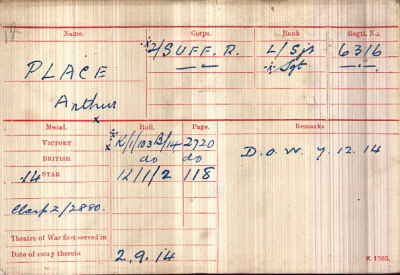 Name. Corps. Rank Regtl. No.
2/SUFF. R. L/Sjt 6316
PLACE — " — Sgt — " —
Arthur
Medal. Roll. Page. Remarks
VICTORY K/1/103B/14 2720
BRITISH do do D.O.W. 7.12.14
14 STAR 12/1/2 118
Clasp 2/2880.
Theatre of War first served in
Date of entry therein 2.9.14
K. 1380.